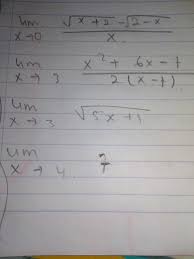 lim x→0 √x+2 - √2-x / x
lim x→3 x² + 6x - 1 / 2(x-1)
lim x→3 √5x+1
lim x→4 7